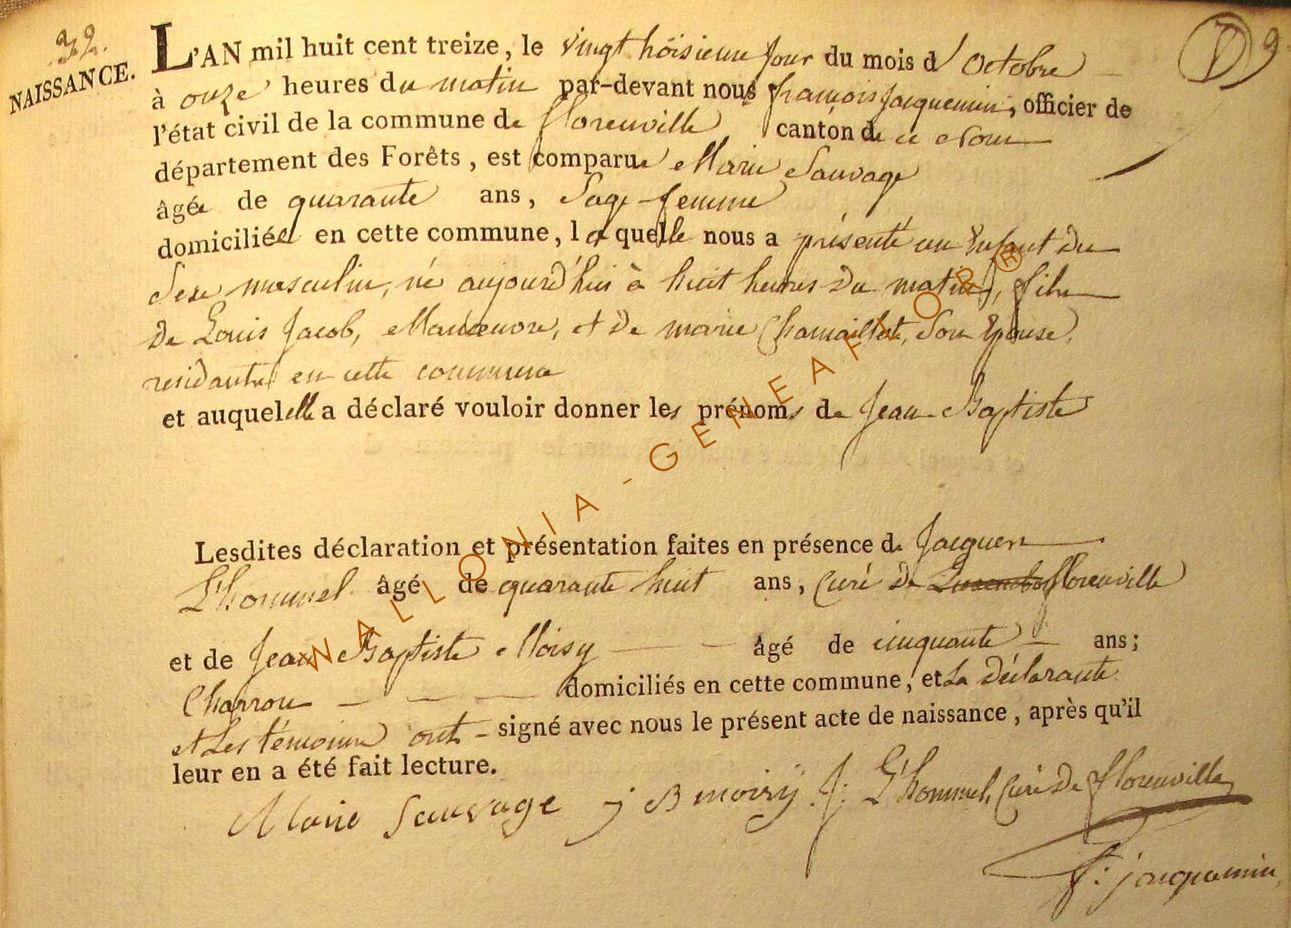 32.
NAISSANCE.
L'AN mil huit cent treize, le vingt troisieme jour du mois d'Octobre
à onze heures du matin par-devant nous françois Jacquemin, officier de
l'état civil de la commune de florenville canton de ce nom
département des Forêts, est comparue Marie Sauvage
âgée de quarante ans, Sage-femme
domiciliée en cette commune, laquelle nous a présenté un Enfant du
Sexe masculin, né aujourd'hui à huit heures du matin, fils
de Louis Jacob, Manœuvre, et de marie Chamaillot, Son Epouse,
residante en cette commune
et auquel elle a déclaré vouloir donner les prénoms de Jean Baptiste
Lesdites déclaration et présentation faites en présence de Jacques
L'hommel âgé de quarante huit ans, Curé de florenville
et de Jean Baptiste Moisy âgé de cinquante ans;
Charron domiciliés en cette commune, et La Déclarante
et Les témoins ont signé avec nous le présent acte de naissance, après qu'il
leur en a été fait lecture.
Marie Sauvage j B moisy J: L'hommel, Curé De florenville
f: jacquemin
WALLONIA-GENEAFLOR®